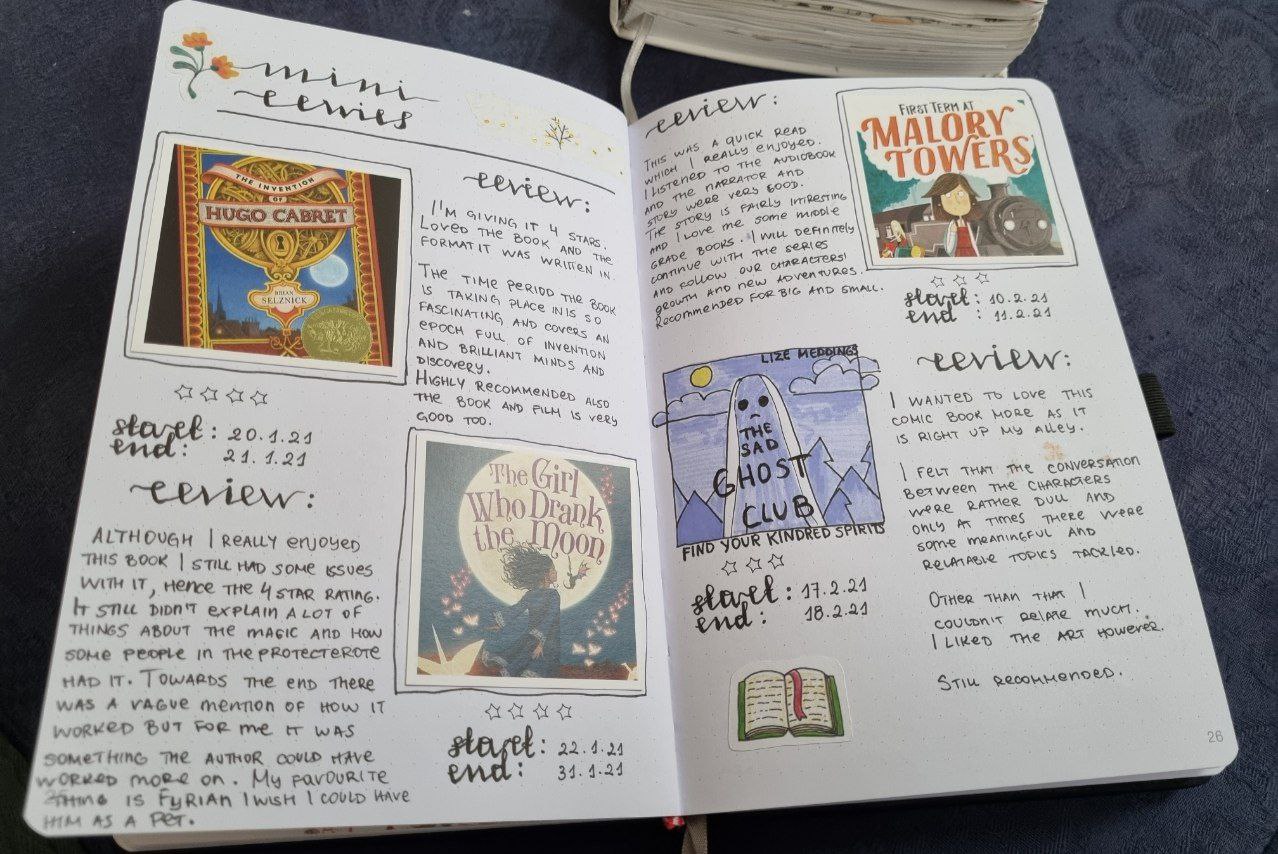 mini
reviews
THE INVENTION
OF
HUGO CABRET
BRIAN
SELZNICK
start: 20.1.21
end: 21.1.21
review:
I'M GIVING IT 4 STARS.
LOVED THE BOOK AND THE
FORMAT IT WAS WRITTEN IN.
THE TIME PERIOD THE BOOK
IS TAKING PLACE IN IS SO
FASCINATING AND COVERS AN
EPOCH FULL OF INVENTION
AND BRILLIANT MINDS AND
DISCOVERY.
HIGHLY RECOMMENDED ALSO
THE BOOK AND FILM IS VERY
GOOD TOO.
review:
ALTHOUGH I REALLY ENJOYED
THIS BOOK I STILL HAD SOME ISSUES
WITH IT, HENCE THE 4 STAR RATING.
IT STILL DIDN'T EXPLAIN A LOT OF
THINGS ABOUT THE MAGIC AND HOW
SOME PEOPLE IN THE PROTECTEROTE
HAD IT. TOWARDS THE END THERE
WAS A VAGUE MENTION OF HOW IT
WORKED BUT FOR ME IT WAS
SOMETHING THE AUTHOR COULD HAVE
WORKED MORE ON. MY FAVOURITE
THING IS FYRIAN I WISH I COULD HAVE
HIM AS A PET.
The Girl
Who Drank
the Moon
start: 22.1.21
end: 31.1.21
review:
THIS WAS A QUICK READ
WHICH I REALLY ENJOYED.
I LISTENED TO THE AUDIOBOOK
AND THE NARRATOR AND
STORY WERE VERY GOOD.
THE STORY IS FAIRLY INTRESTING
AND I LOVE ME SOME MIDDLE
GRADE BOOKS. I WILL DEFINITELY
CONTINUE WITH THE SERIES
AND FOLLOW OUR CHARACTERS'
GROWTH AND NEW ADVENTURES.
RECOMMENDED FOR BIG AND SMALL.
FIRST TERM AT
MALORY
TOWERS
start: 10.2.21
end: 11.2.21
LIZE MEDDINGS
THE
SAD
GHOST
CLUB
FIND YOUR KINDRED SPIRITS
start: 17.2.21
end: 18.2.21
review:
I WANTED TO LOVE THIS
COMIC BOOK MORE AS IT
IS RIGHT UP MY ALLEY.
I FELT THAT THE CONVERSATION
BETWEEN THE CHARACTERS
WERE RATHER DULL AND
ONLY AT TIMES THERE WERE
SOME MEANINGFUL AND
RELATABLE TOPICS TACKLED.
OTHER THAN THAT I
COULDN'T RELATE MUCH.
I LIKED THE ART HOWEVER.
STILL RECOMMENDED.
26